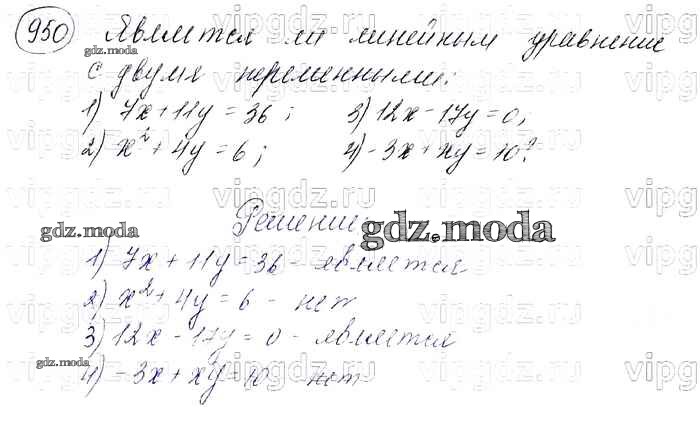 950 Является ли линейным уравнение
с двумя переменными:
1) 7x + 11y = 36; 3) 12x - 17y = 0;
2) x² + 4y = 6; 4) -3x + xy = 10?
Решение:
1) 7x + 11y = 36 - является
2) x² + 4y = 6 - нет
3) 12x - 17y = 0 - является
4) -3x + xy = 10 - нет
gdz.moda
gdz.moda
gdz.moda
gdz.moda
vipgdz.ru